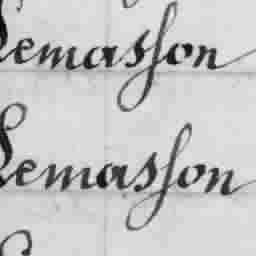 Lemasson
Lemasson